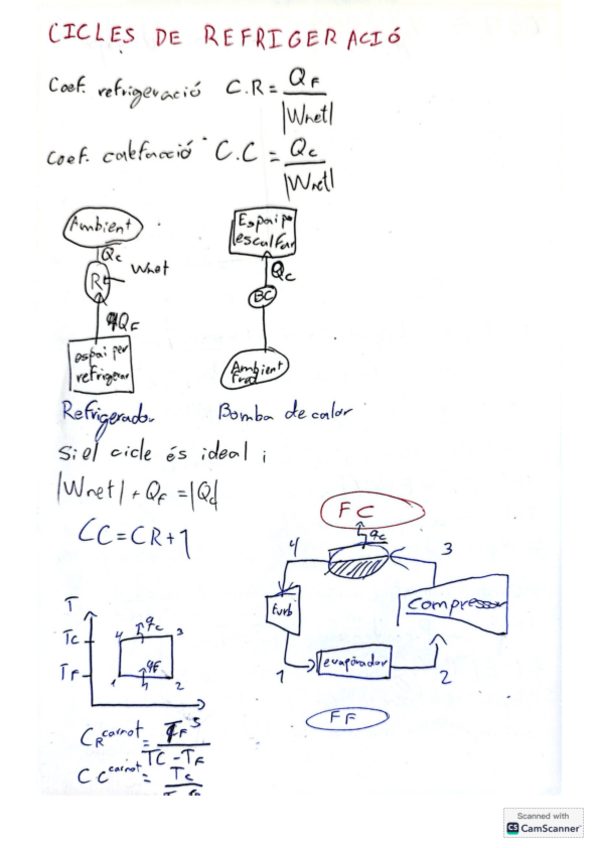 CICLES DE REFRIGERACIÓ
Coef. refrigeració C.R = QF / |Wnet|
Coef. calefacció C.C = Qc / |Wnet|
Ambient
Qc
R
Wnet
QF
espai per
refrigerar
Refrigerador
Espai per
escalfar
Qc
BC
Ambient
fred
Bomba de calor
Si el cicle és ideal i
|Wnet| + QF = |Qc|
CC = CR + 1
FC
qc
4
3
turb
compressor
1
evaporador
2
FF
T
Tc
TF
4
qc
3
1
qF
2
s
CR carnot = TF / TC - TF
CC carnot = Tc
Scanned with
CS CamScanner